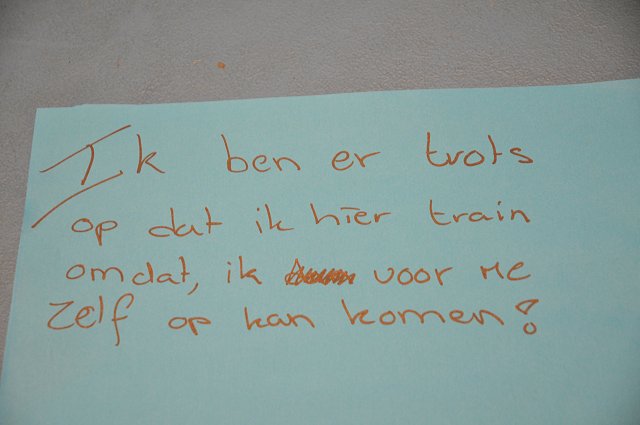 Ik ben er trots
op dat ik hier train
omdat, ik voor me
zelf op kan komen!